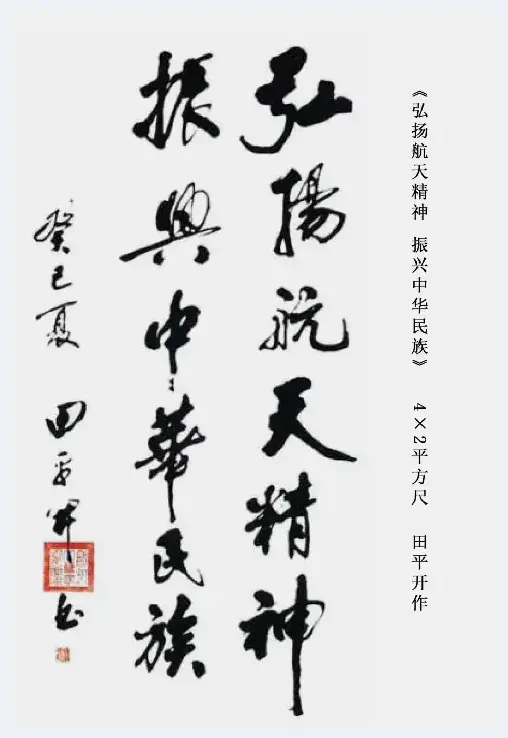 《弘扬航天精神 振兴中华民族》 4×2平方尺 田平开作
弘揚航天精神
振興中華民族
癸巳夏 田平開書